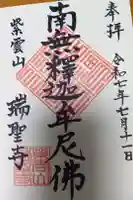 奉拝
令和七年七月十一日
南無釋迦牟尼佛
紫雲山
瑞聖寺